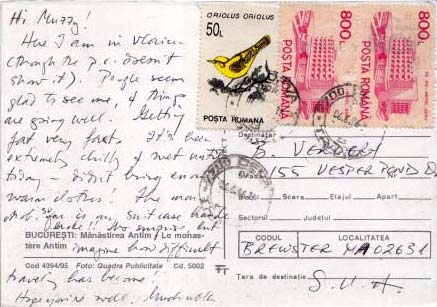 Hi Muzzy!
Here I am in
(though the p.c. doesn't
show it). People seem
glad to see me, & things
are going well. Getting
fat very fast. It's been
extremely chilly & wet until
today - didn't bring enough
warm clothes. The main
prob. is my suitcase handle
broke! No surprise but
imagine how difficult
traveling has become!
Hope you're well. Much
BUCUREȘTI: Mănăstirea Antim / Le monas-
tere Antim
Cod 4394/95 Foto: Quadra Publicitate Cd. 5002
ORIOLUS ORIOLUS
50L
POSTA ROMANA
800L
POSTA ROMANA
800L
POSTA ROMANA
Destinatar
B.
155 VESPER POND D
Bloc Scara Etajul Apart.
Sectorul Județul
CODUL LOCALITATEA
BREWSTER MA 02631
Țara de destinație
S.U.A.